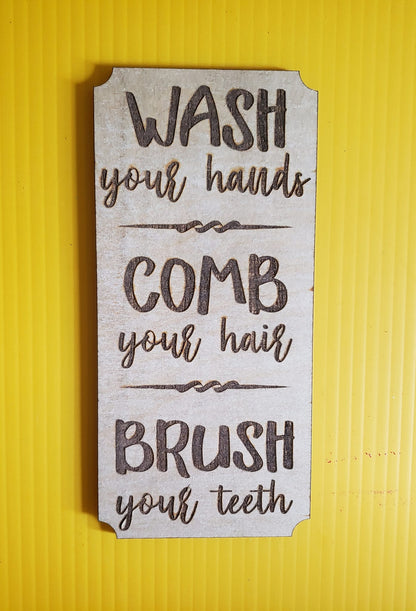 WASH
your hands
COMB
your hair
BRUSH
your teeth